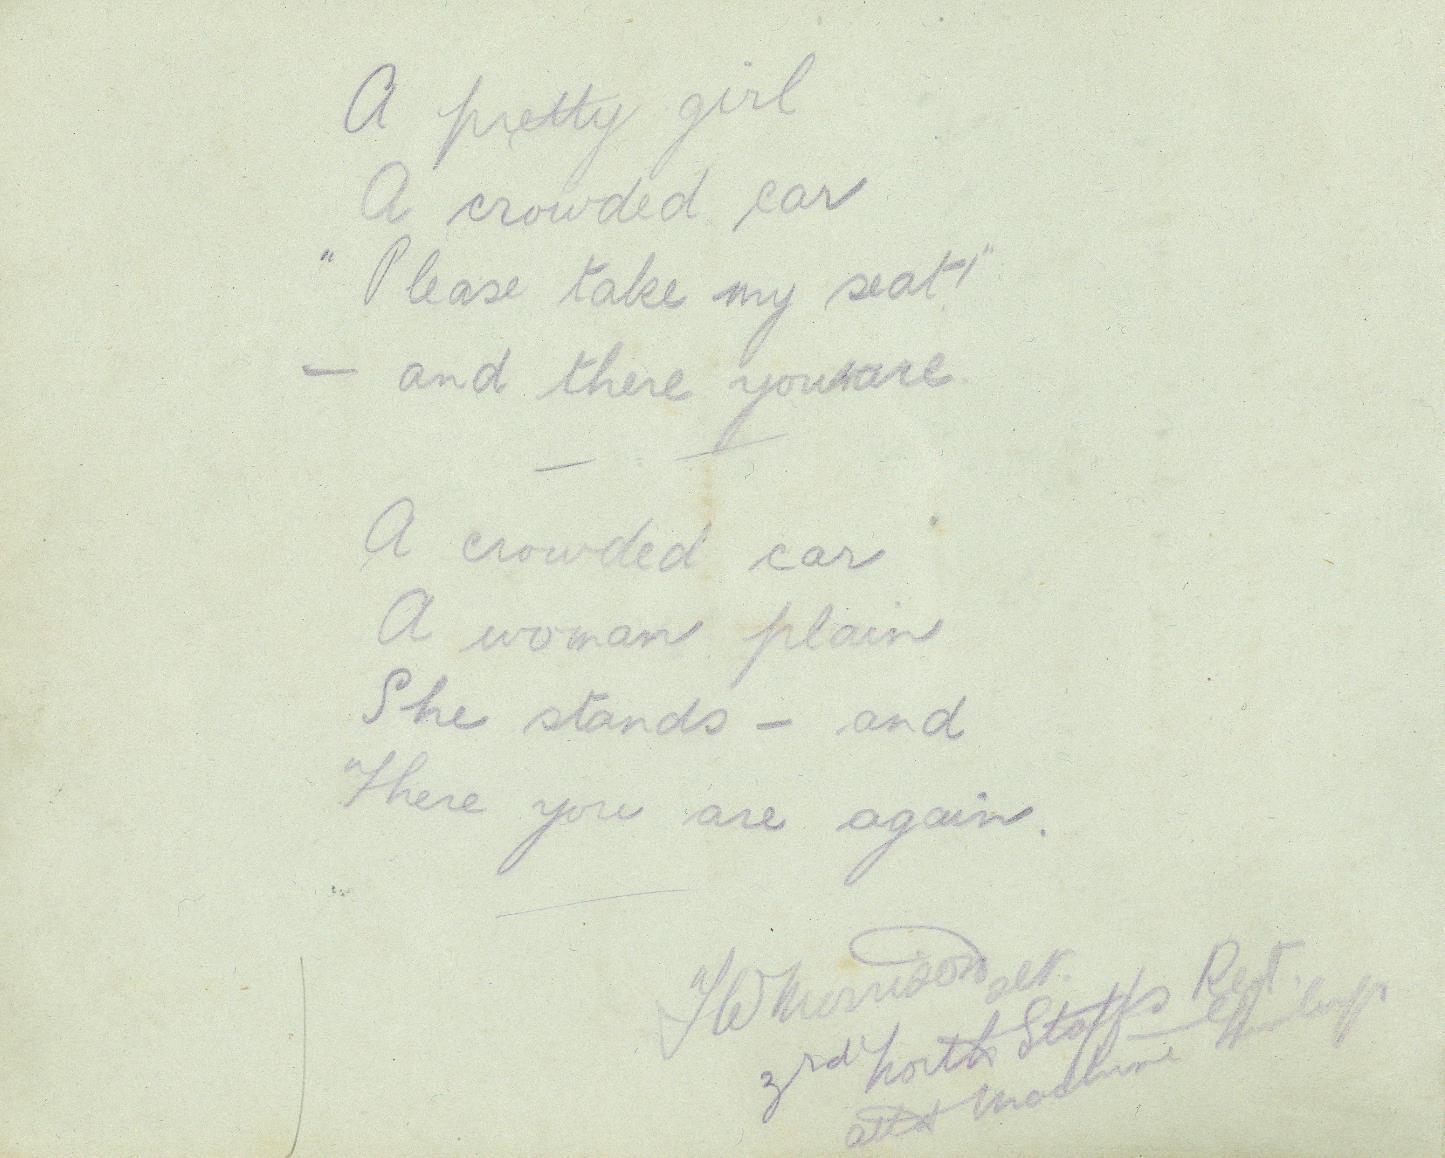 A pretty girl
A crowded car
"Please take my seat!"
— and there you are
A crowded car
A woman plain
She stands — and
There you are again.
Morrison
3rd North Staffs Regt.
attd Machine